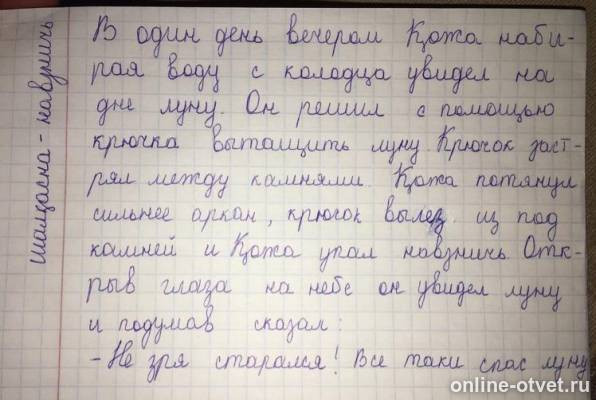 шалқасна - навзничь
В один день вечером Қожа наби-
рая воду с колодца увидел на
дне луну. Он решил с помощью
крючка вытащить луну. Крючок заст-
рял между камнями. Қожа потянул
сильнее аркан, крючок вылез из под
камней и Қожа упал навзничь. Отк-
рыв глаза на небе он увидел луну
и подумав сказал:
- Не зря старался! Все таки спас луну
online-otvet.ru